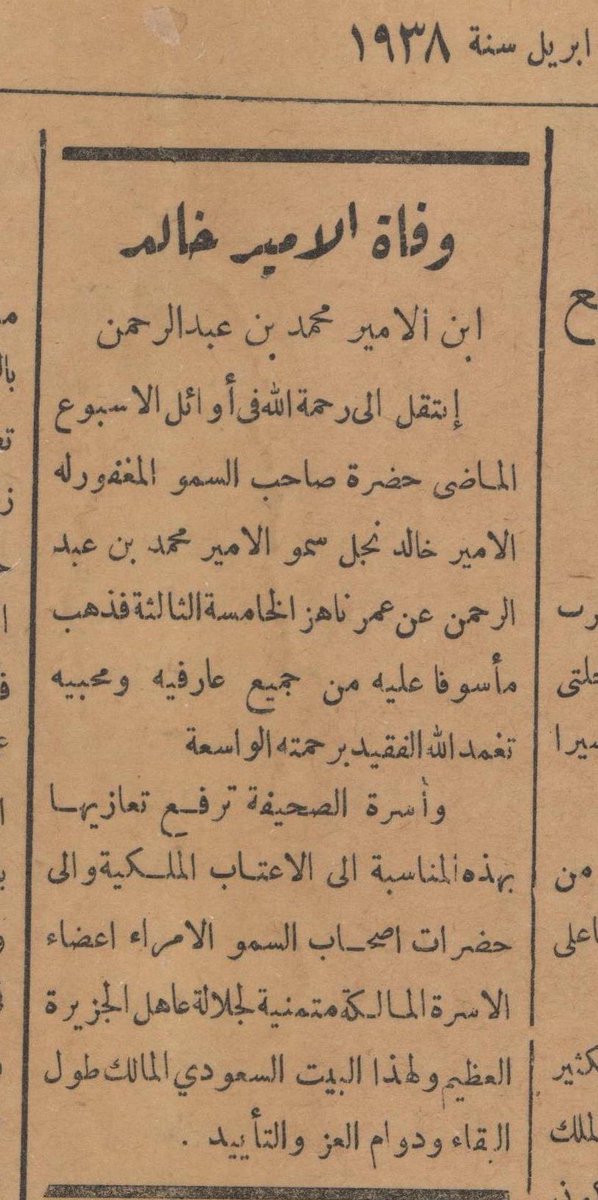 ابريل سنة ١٩٣٨
وفاة الامير خالد
ابن الامير محمد بن عبدالرحمن
إنتقل الى رحمة الله فى أوائل الاسبوع
الماضى حضرة صاحب السمو المغفورله
الامير خالد نجل سمو الامير محمد بن عبد
الرحمن عن عمر ناهز الخامسة الثالثة فذهب
مأسوفا عليه من جميع عارفيه ومحبيه
تغمد الله الفقيد برحمته الواسعة
وأسرة الصحيفة ترفع تعازيها
بهذه المناسبة الى الاعتاب الملكية والى
حضرات اصحاب السمو الامراء اعضاء
الاسرة المالكة متمنية لجلالة عاهل الجزيرة
العظيم ولهذا البيت السعودي المالك طول
البقاء ودوام العز والتأييد .
من